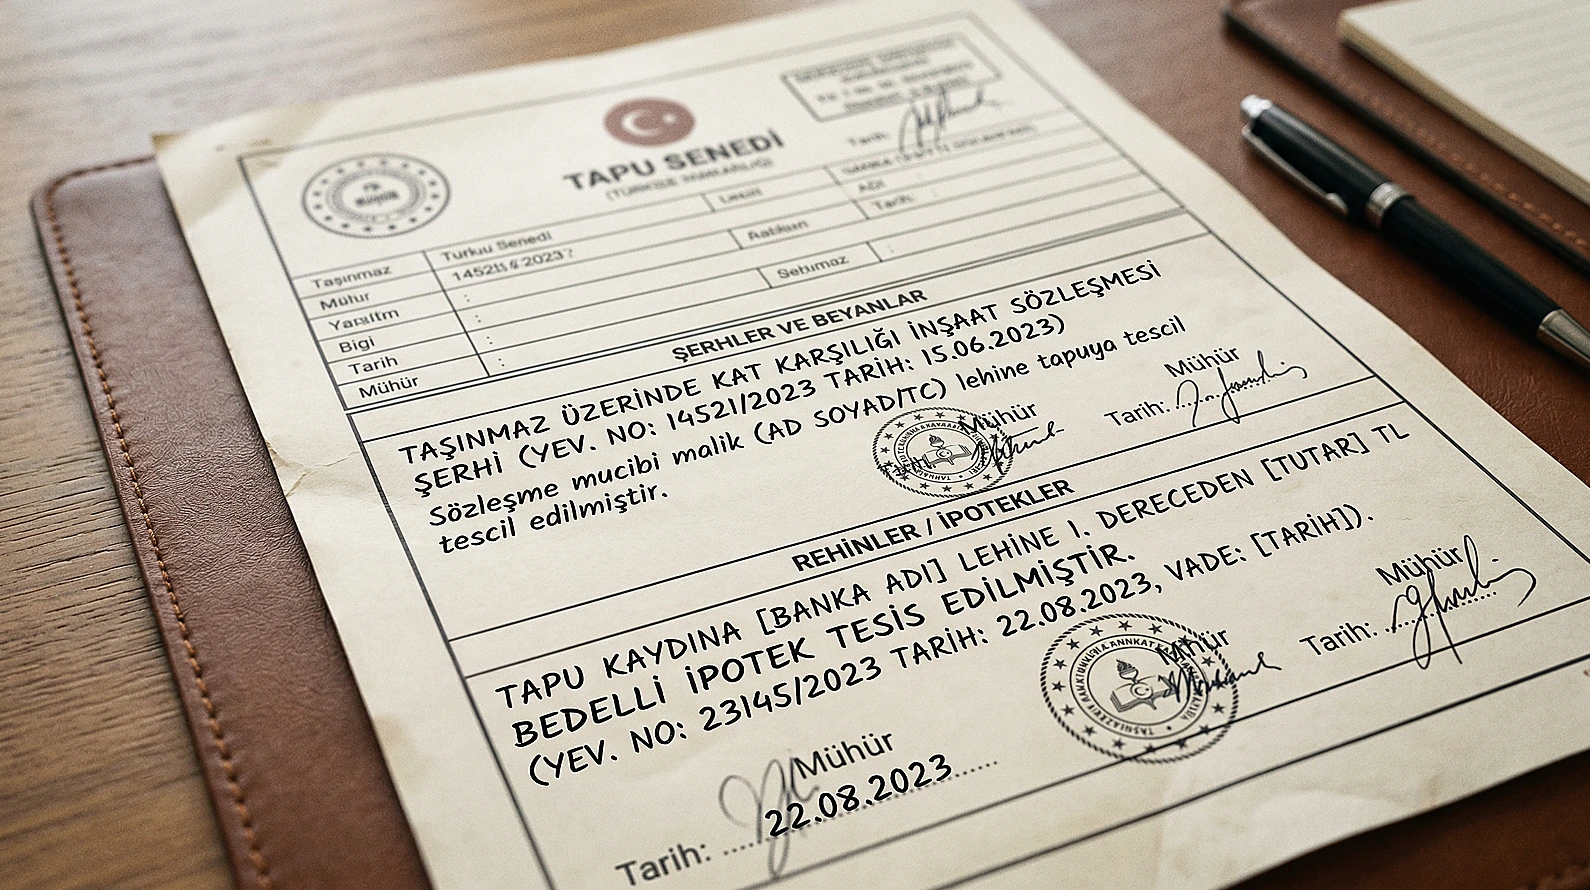 TAPU SENEDİ
Tarih:
ADI
Tarih:
Taşınmaz
Turkuu Senedi
Mülur
Bigi
Tarih
Mühür
Setumaz
ŞERHLER VE BEYANLAR
TAŞINMAZ ÜZERİNDE KAT KARŞILIĞI İNŞAAT SÖZLEŞMESİ
ŞERHİ (YEV. NO: 14521/2023 TARİH: 15.06.2023)
Sözleşme mucibi malik (AD SOYAD/TC) lehine tapuya tescil
tescil edilmiştir.
Mühür
Mühür
Tarih:
REHİNLER / İPOTEKLER
TAPU KAYDINA [BANKA ADI] LEHİNE 1. DERECEDEN [TUTAR] TL
BEDELLİ İPOTEK TESİS EDİLMİŞTİR.
(YEV. NO: 23145/2023 TARİH: 22.08.2023, VADE: [TARİH]).
Mühür
Mühür
Tarih:
Mühür
Tarih: 22.08.2023